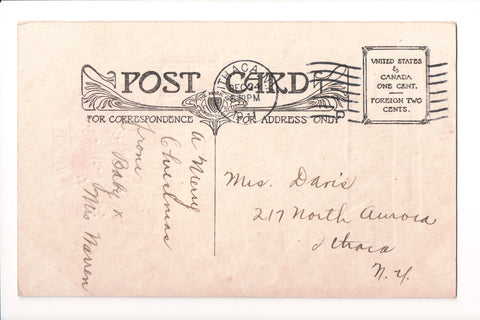 POST CARD
FOR CORRESPONDENCE
FOR ADDRESS ONLY
ITHACA, N.Y.
DEC 24
PM
UNITED STATES
&
CANADA
ONE CENT.
FOREIGN TWO
CENTS.
a Merry
Christmas
from
Baby &
Mrs Warren
Mrs. Davis
217 North Aurora
Ithaca
N.Y.